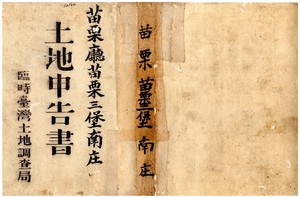 苗栗 苗栗三堡 南庄
苗栗廳苗栗三堡南庄
土地申告書
臨時臺灣土地調查局